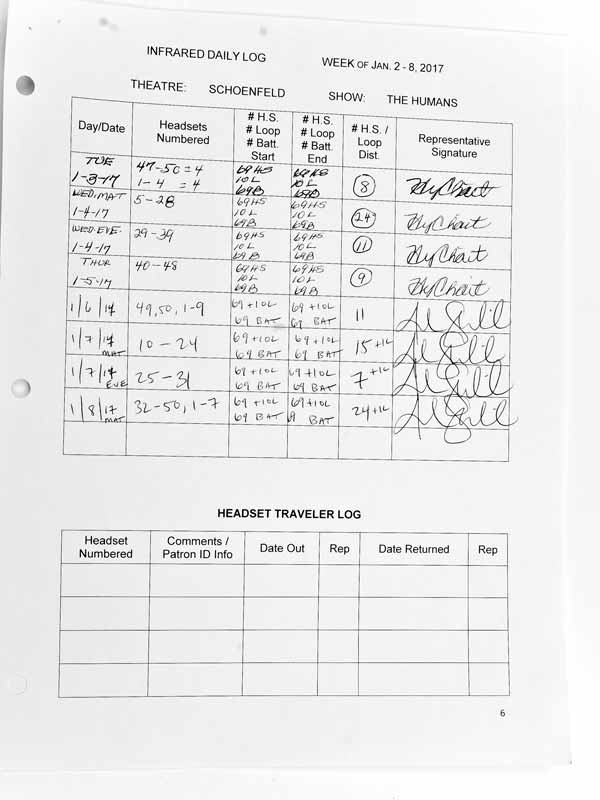 INFRARED DAILY LOG WEEK OF JAN. 2 - 8, 2017
THEATRE: SCHOENFELD SHOW: THE HUMANS
Day/Date Headsets Numbered # H.S. # Loop # Batt. Start # H.S. # Loop # Batt. End # H.S. / Loop Dist. Representative Signature
TUE 1-3-17 47-50=4 1-4 =4 69HS 10L 69B 69HS 10L 69B 8
WED, MAT 1-4-17 5-28 69HS 10L 69B 69HS 10L 69B 24
WED-EVE- 1-4-17 29-39 69HS 10L 69B 69HS 10L 69B 11
THUR 1-5-17 40-48 69HS 10L 69B 69HS 10L 69B 9
1/6/17 49,50,1-9 69+10L 69 BAT 69+10L 69 BAT 11
1/7/17 MAT 10-24 69+10L 69 BAT 69+10L 69 BAT 15+1L
1/7/17 EVE 25-31 69+10L 69 BAT 69+10L 69 BAT 7+1L
1/8/17 MAT 32-50, 1-7 69+10L 69 BAT 69+10L 69 BAT 24+1L
HEADSET TRAVELER LOG
Headset Numbered Comments / Patron ID Info Date Out Rep Date Returned Rep
6